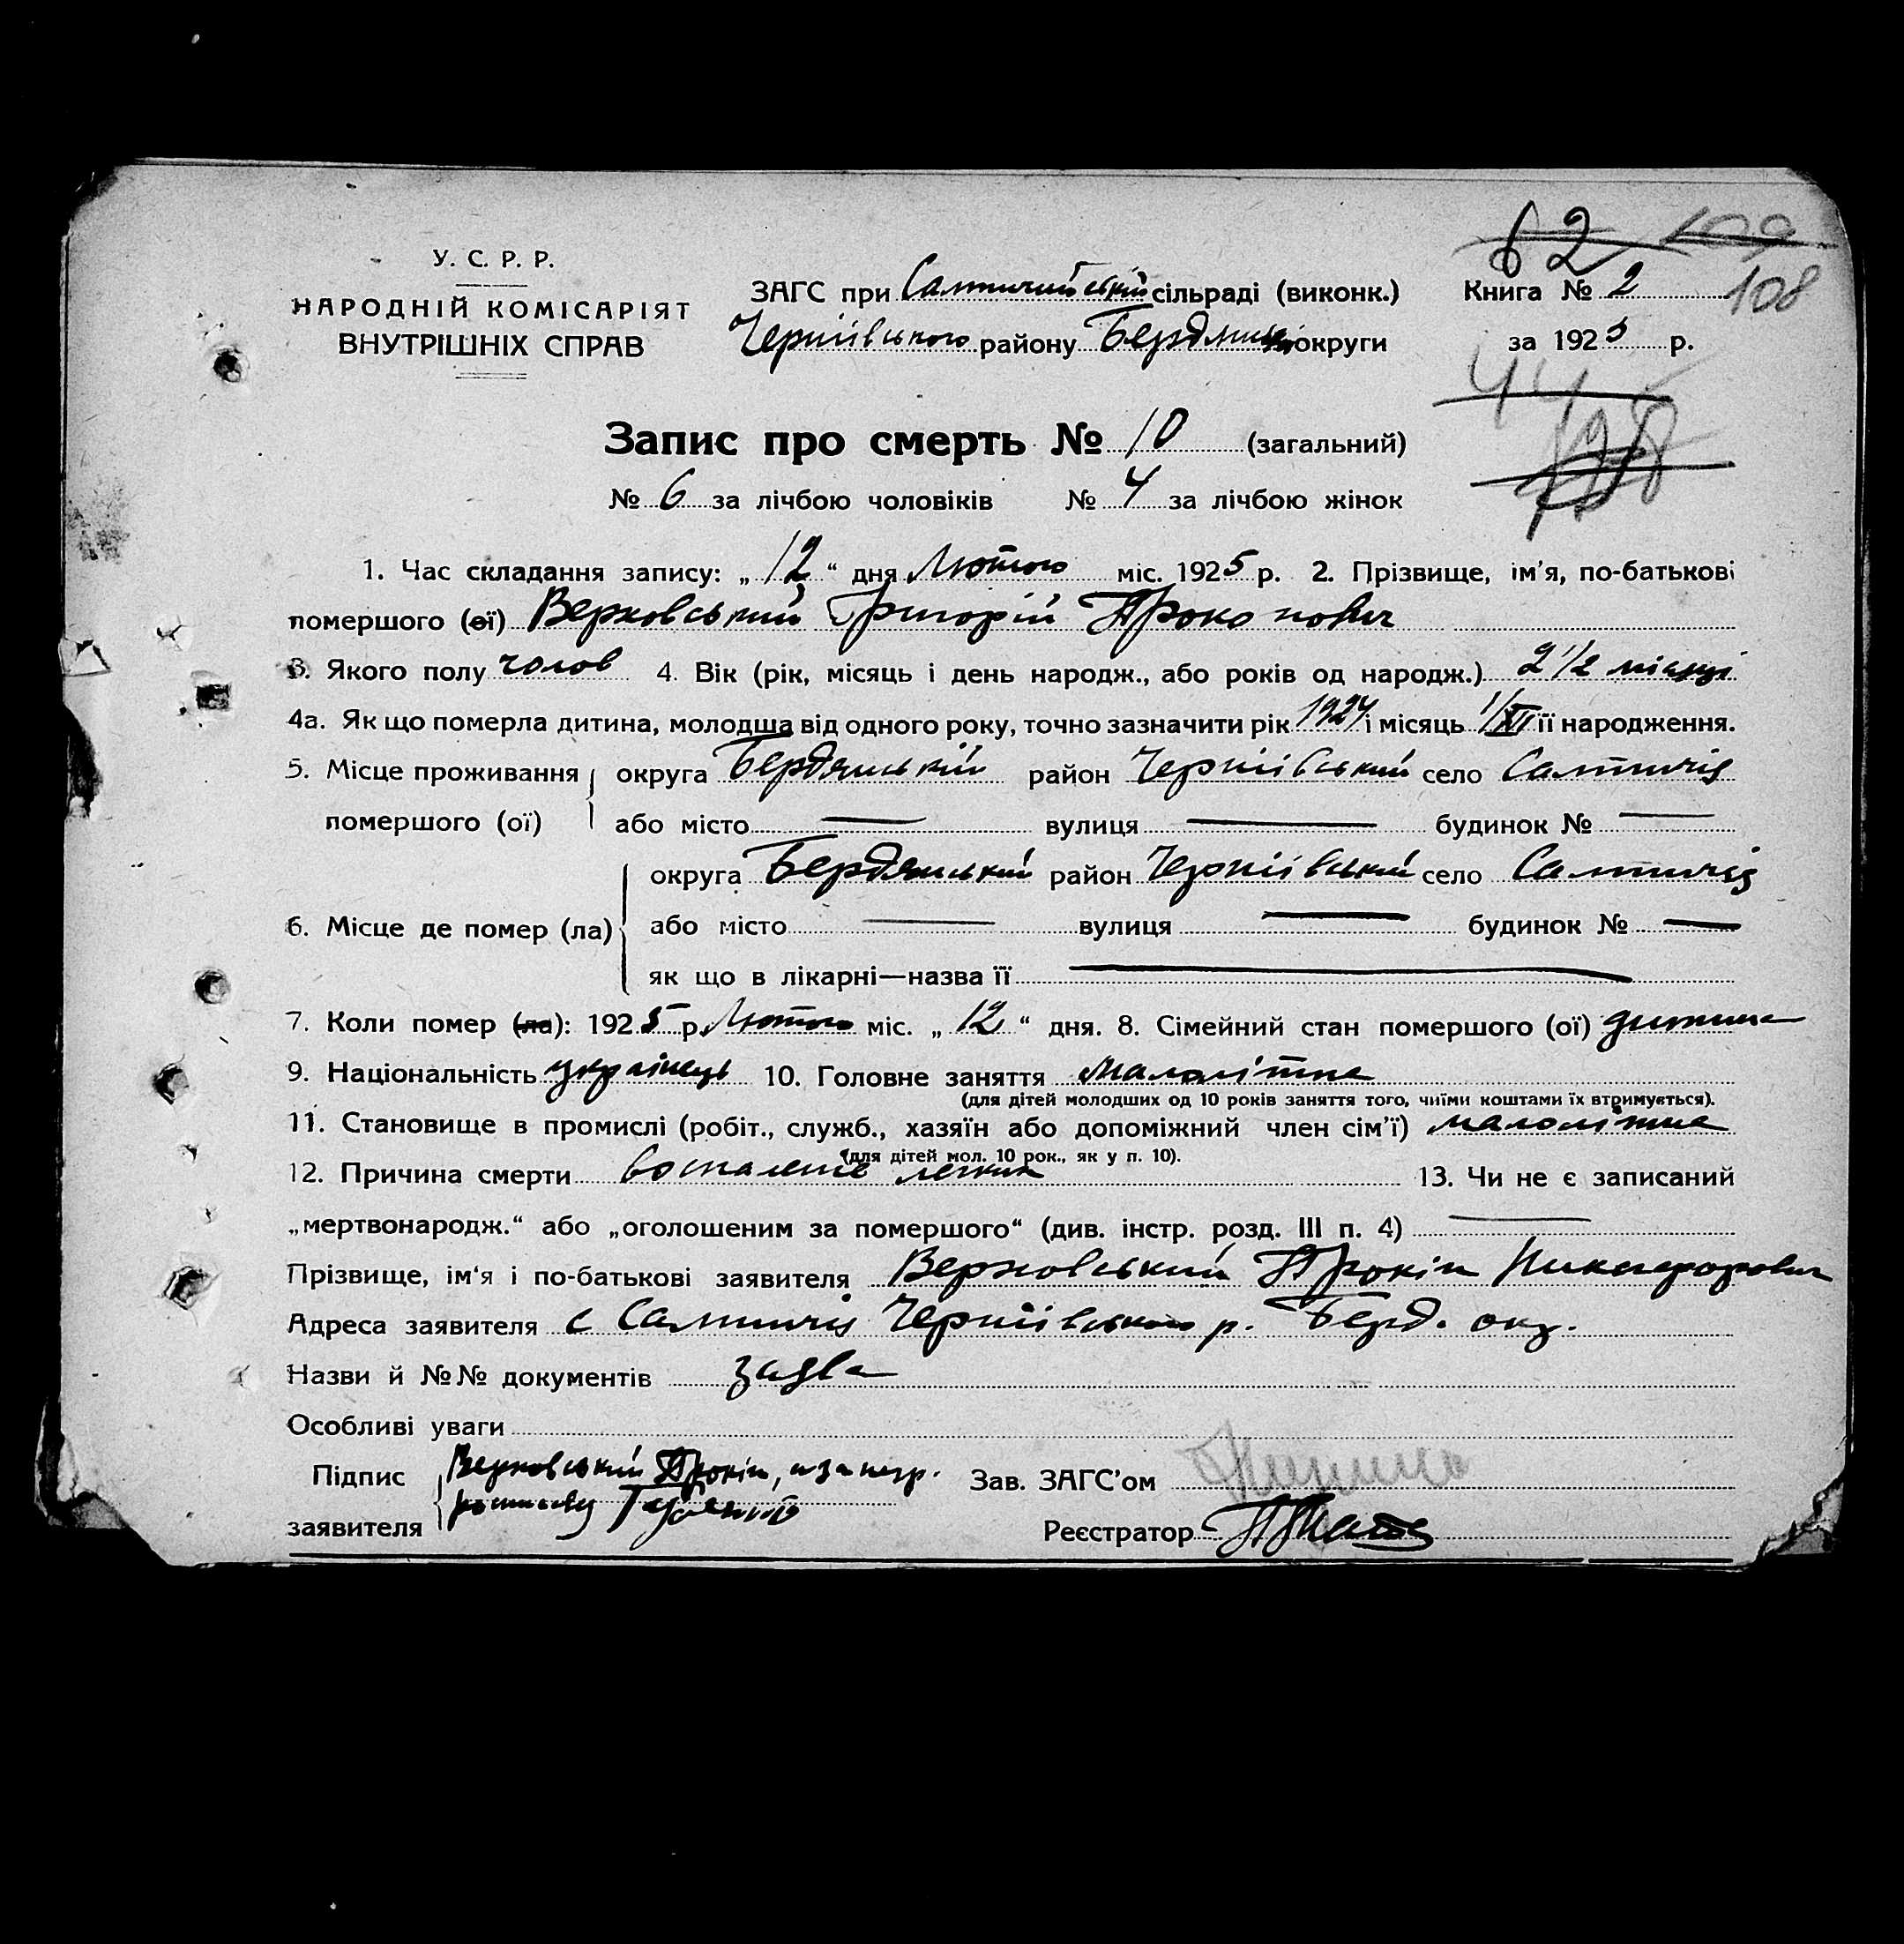 62 109
У. С. Р. Р.
НАРОДНІЙ КОМІСАРІЯТ
ВНУТРІШНІХ СПРАВ
ЗАГС при Салтичийській сільраді (виконк.)
Чернiївського району Бердянської округи
Книга № 2 108
за 1925 р.
44
Запис про смерть № 10 (загальний)
№ 6 за лічбою чоловіків № 4 за лічбою жінок
1. Час складання запису: „12“ дня Лютого міс. 1925 р. 2. Прізвище, ім'я, по-батькові
помершого (ої) Верховський Григорій Прокопович
3. Якого полу чолов 4. Вік (рік, місяць і день народж., або років од народж.) 2 1/2 місяці
4а. Як що померла дитина, молодша від одного року, точно зазначити рік 1924 і місяць 1/XI її народження.
5. Місце проживання округа Бердянській район Чернiївський село Салтичія
помершого (ої) або місто — вулиця — будинок № —
округа Бердянський район Чернiївський село Салтичія
6. Місце де помер (ла) або місто — вулиця — будинок № —
як що в лікарні—назва її —
7. Коли помер (ла): 1925 р. Лютого міс. „12“ дня. 8. Сімейний стан помершого (ої) дитина
9. Національність українець 10. Головне заняття малолітне
(для дітей молодших од 10 років заняття того, чиїми коштами їх втримується).
11. Становище в промислі (робіт., служб., хазяїн або допоміжний член сім'ї) малолітне
(для дітей мол. 10 рок., як у п. 10).
12. Причина смерти воспаление легких 13. Чи не є записаний
„мертвонародж.“ або „оголошеним за помершого“ (див. інстр. розд. III п. 4) —
Прізвище, ім'я і по-батькові заявителя Верховський Прокіп Никифорович
Адреса заявителя с Салтичія Чернiївського р. Берд. окр.
Назви й №№ документів заява
Особливі уваги
Підпис Верховський Прокіп, а за негр.
заявителя
Зав. ЗАГС'ом
Реєстратор